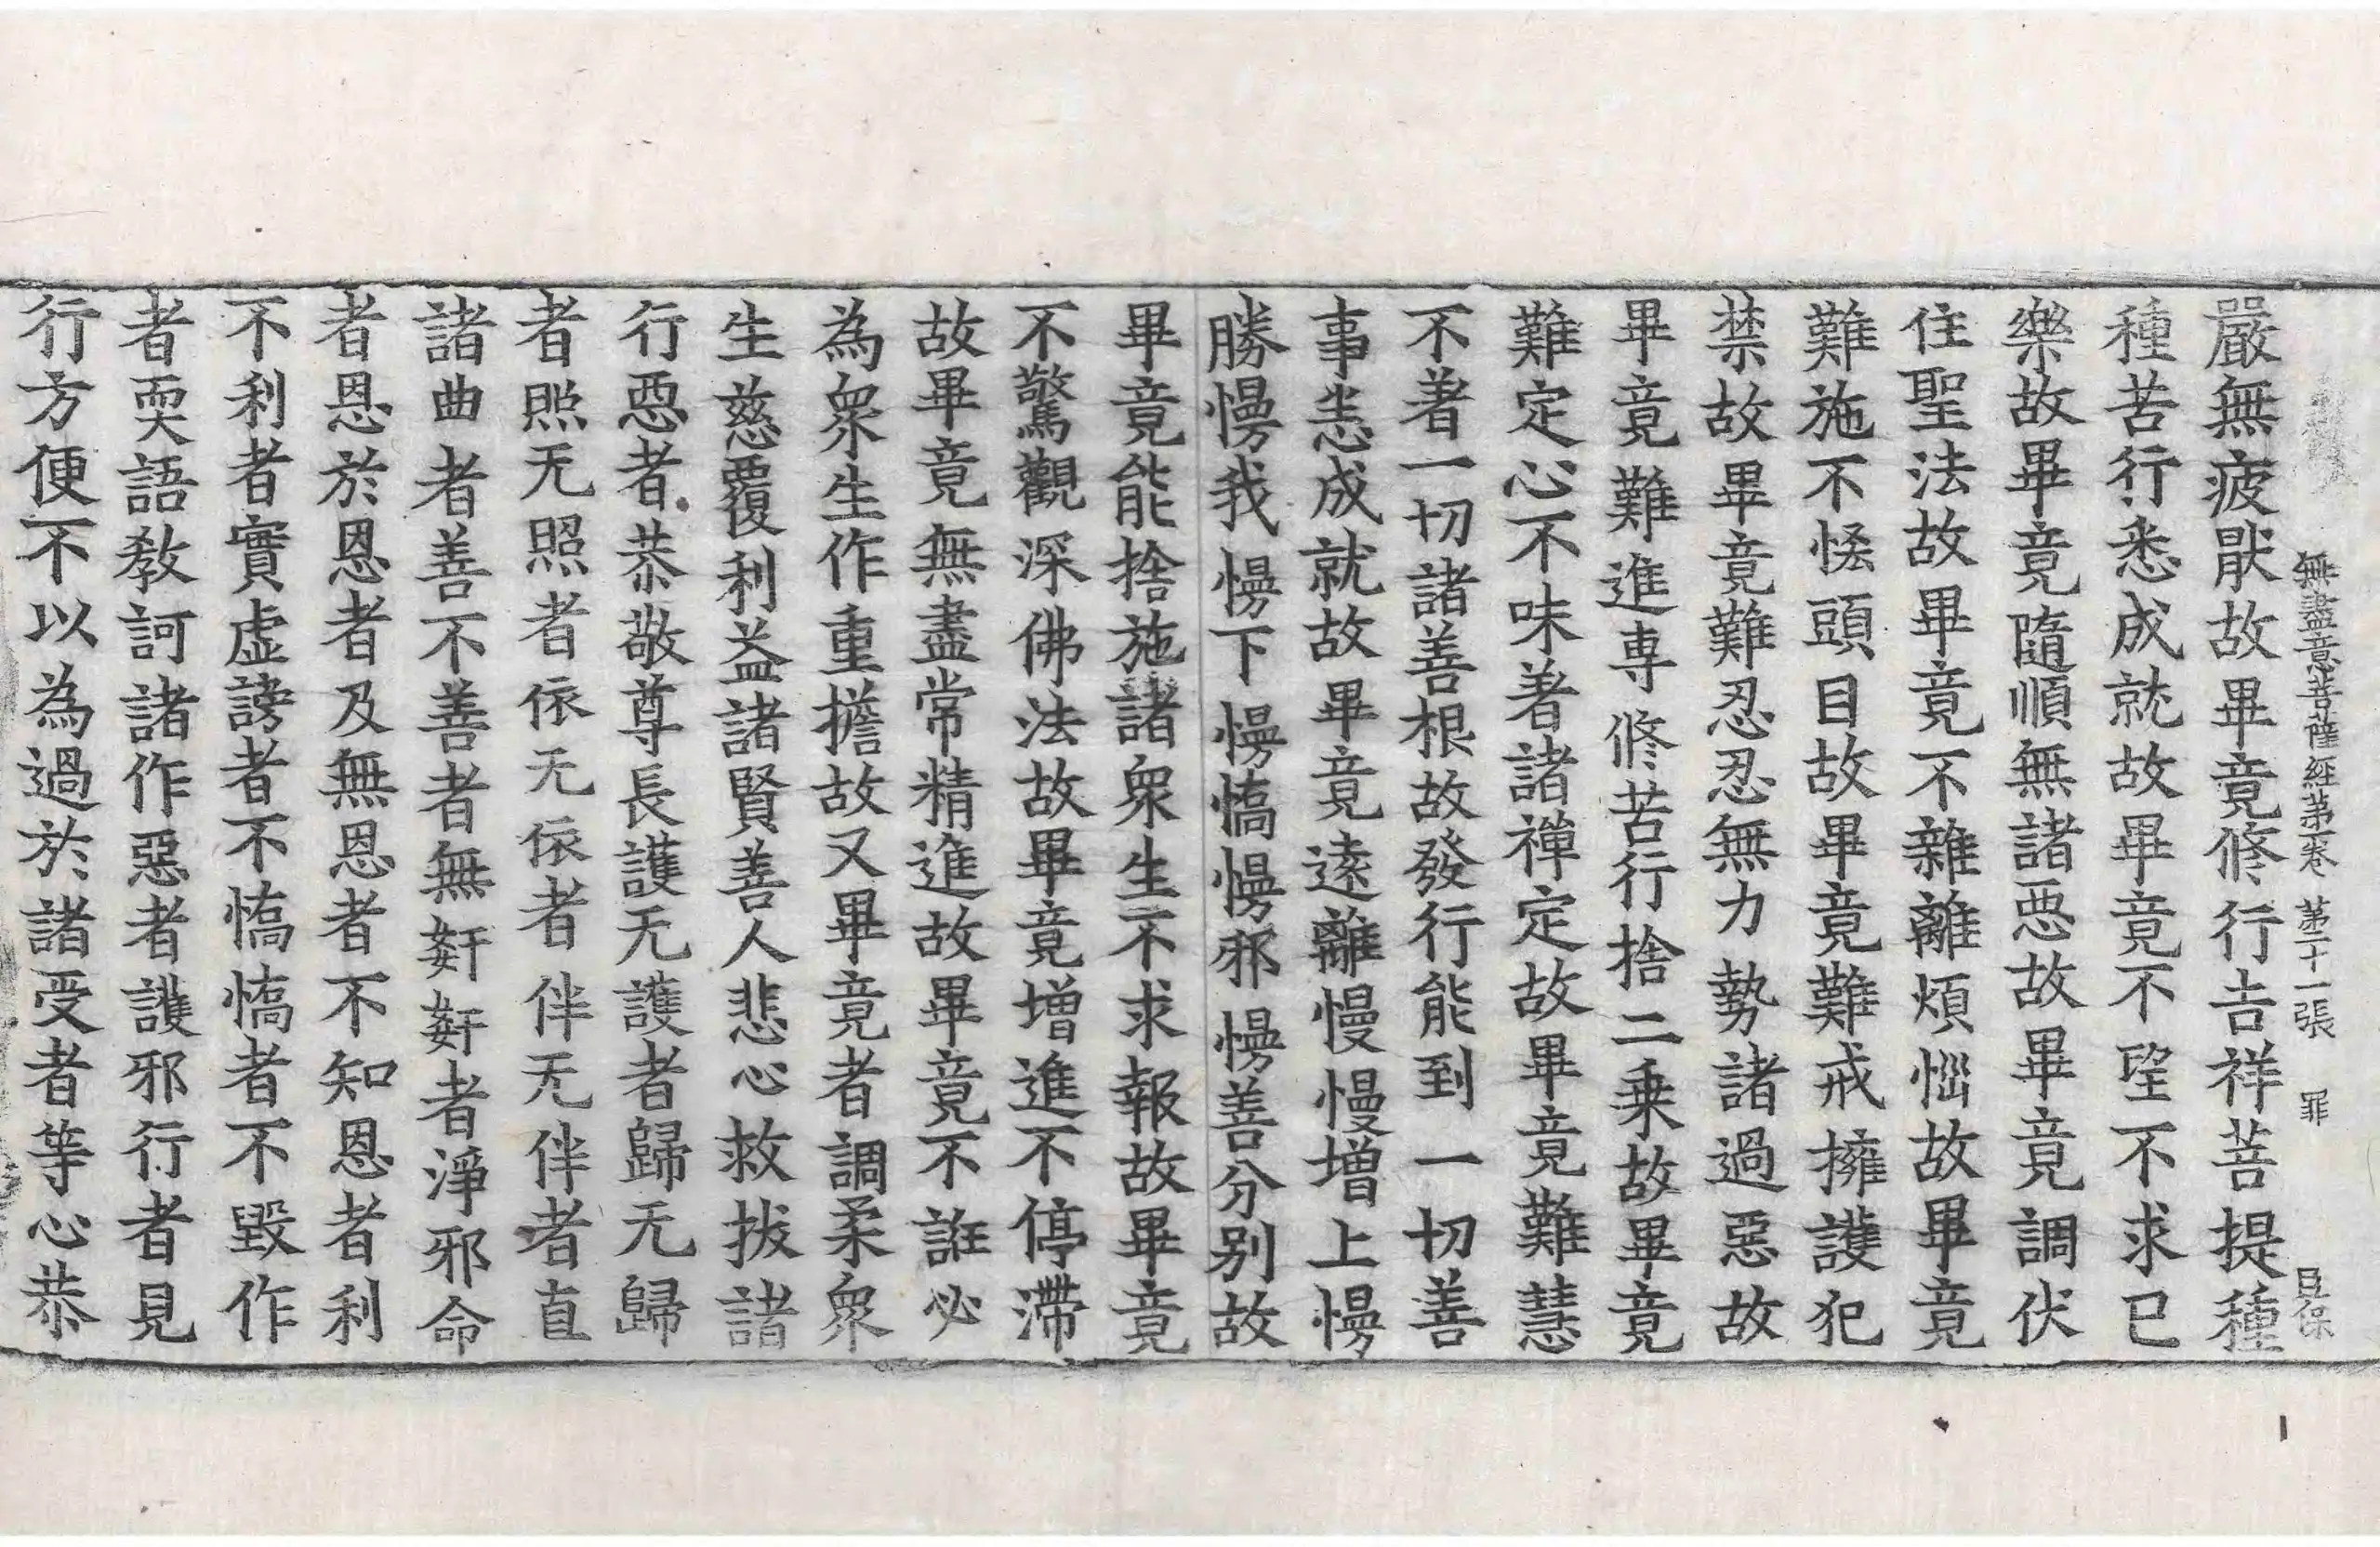 無盡意菩薩經第一卷 第十一張 罪
嚴無疲猒故畢竟修行吉祥菩提種
種苦行悉成就故畢竟不望不求已
樂故畢竟隨順無諸惡故畢竟調伏
住聖法故畢竟不雜離煩惱故畢竟
難施不悋頭目故畢竟難戒擁護犯
禁故畢竟難忍忍無力勢諸過惡故
畢竟難進專修苦行捨二乗故畢竟
難定心不味著諸禪定故畢竟難慧
不著一切諸善根故發行能到一切善
事悉成就故畢竟遠離慢慢增上慢
勝慢我慢下慢憍慢邪慢善分別故
畢竟能捨施諸衆生不求報故畢竟
不驚觀深佛法故畢竟增進不停滯
故畢竟無盡常精進故畢竟不誑必
為衆生作重擔故又畢竟者調柔衆
生慈覆利益諸賢善人悲心救拔諸
行惡者恭敬尊長護无護者歸无歸
者照无照者依无依者伴无伴者直
諸曲者善不善者無姧姧者淨邪命
者恩於恩者及無恩者不知恩者利
不利者實虛謗者不憍憍者不毀作
者耎語教訶諸作惡者護邪行者見
行方便不以為過於諸受者等心恭